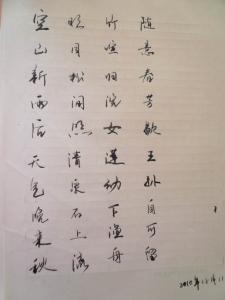 空山新雨后天气晚来秋
明月松间照清泉石上流
竹喧归浣女莲动下渔舟
随意春芳歇王孙自可留
2010年12月11